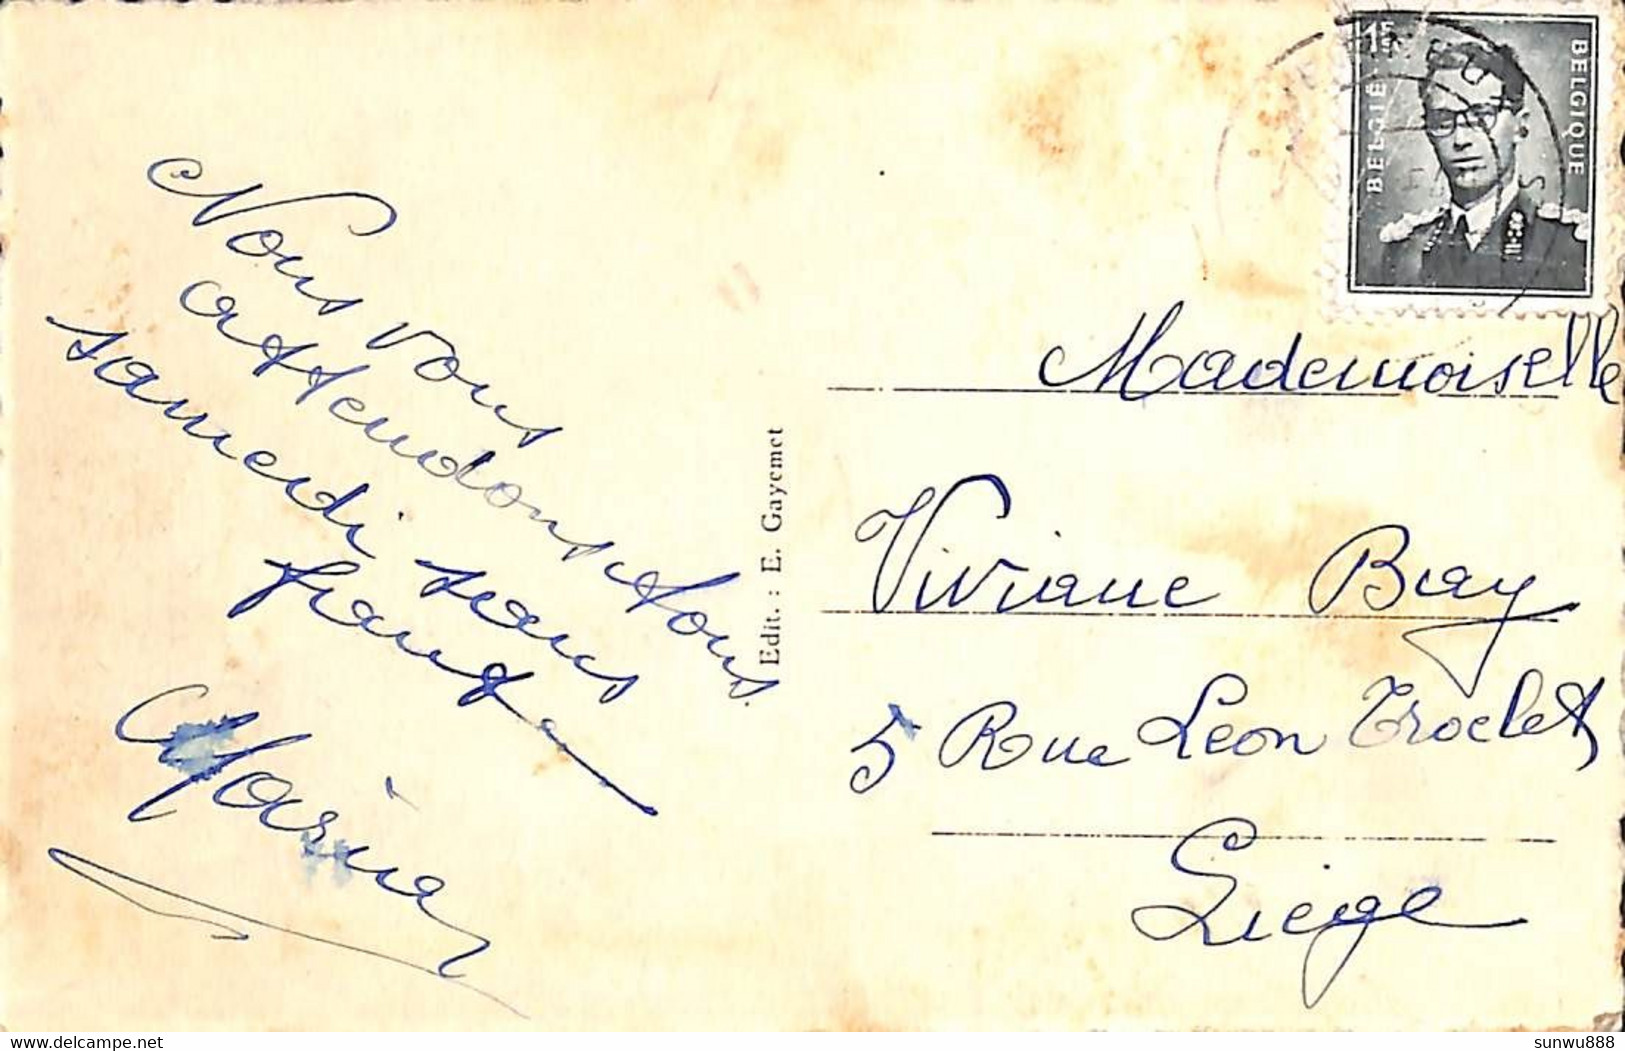 Nous vous
attendons tous
samedi sans
Maria
Edit. : E. Gayemet
1F
BELGIË
BELGIQUE
Mademoiselle
Viviane Bray
5 Rue Leon Troclet
Liège
delcampe.net
sunwu888